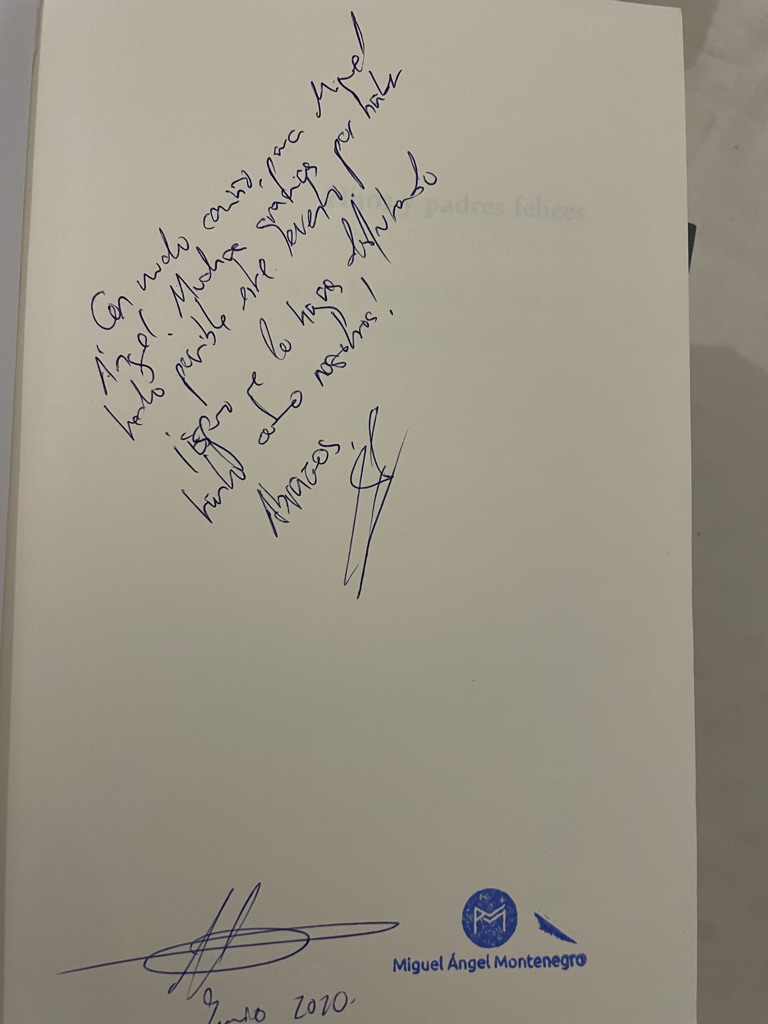 Con mucho cariño, para Miguel
Ángel. Muchas gracias por haber
hecho posible este evento.
¡Espero que lo hayas disfrutado
tanto como nosotros!
Abrazos
Hijos y padres felices
Miguel Ángel Montenegro
Junio 2020.